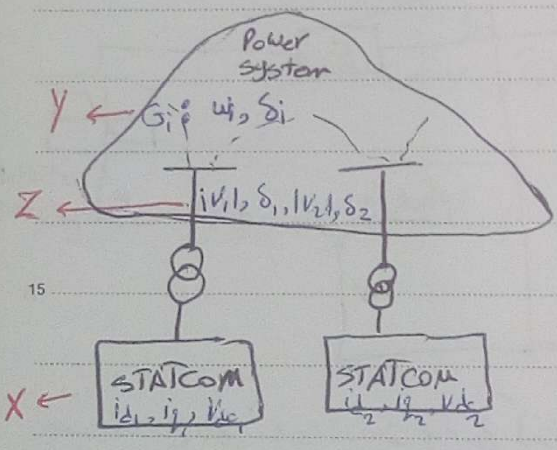 Power
system
Y ← Gi: ωi, δi
Z ← |V1|, δ1, |V2|, δ2
15
STATCOM
id1, iq1, Vdc1
STATCOM
id2, iq2, Vdc2
X ←